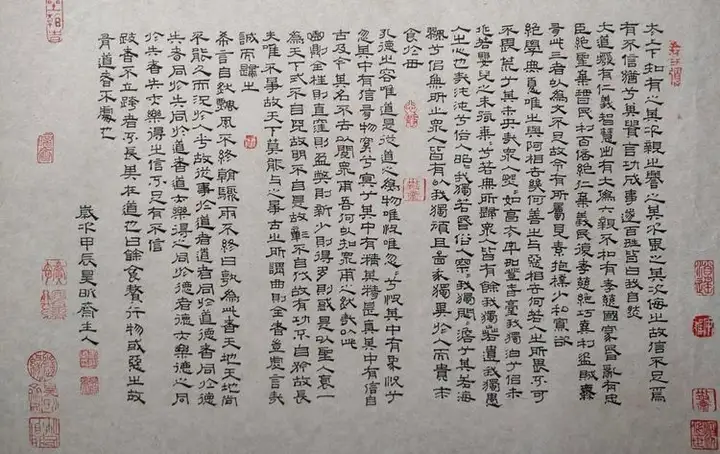 太上下知有之其次親之譽之其次畏之其次侮之故信不足焉
有不信猶兮其貴言功成事遂百姓皆曰我自然
大道廢有仁義智慧出有大偽六親不和有孝慈國家昏亂有忠
臣絕聖棄智民利百倍絕仁棄義民復孝慈絕巧棄利盜賊無
有此三者以為文不足故令有所屬見素抱樸少私寡欲
絕學無憂唯之與阿相去幾何善之與惡相去何若人之所畏不可
不畏荒兮其未央哉眾人熙熙如享太牢如登春臺我獨泊兮其未
兆若嬰兒之未孩乘乘兮若無所歸眾人皆有餘我獨若遺我獨愚
人之心也哉沌沌兮俗人昭昭我獨若昏俗人察察我獨悶悶澹兮其若海
飂兮似無所止眾人皆有以我獨頑且鄙我獨異於人而貴求
食於母
孔德之容唯道是從道之為物唯恍唯忽忽兮恍其中有象恍兮
忽其中有物窈兮冥兮其中有精其精甚真其中有信自
古及今其名不去以閱眾甫吾何以知眾甫之然哉以此
曲則全枉則直窪則盈弊則新少則得多則惑是以聖人抱一
為天下式不自見故明不自是故彰不自伐故有功不自矜故長
夫唯不爭故天下莫能與之爭古之所謂曲則全者豈虛言哉
誠而歸之
希言自然飄風不終朝驟雨不終日孰為此者天地天地尚
不能久而況於人乎故從事於道者道者同於道德者同於德
失者同於失同於道者道亦樂得之同於德者德亦樂得之同
於失者失亦樂得之信不足有不信
跂者不立跨者不長其在道也曰餘食贅行物或惡之故
有道者不處也
歲次甲辰夏昕齋主人